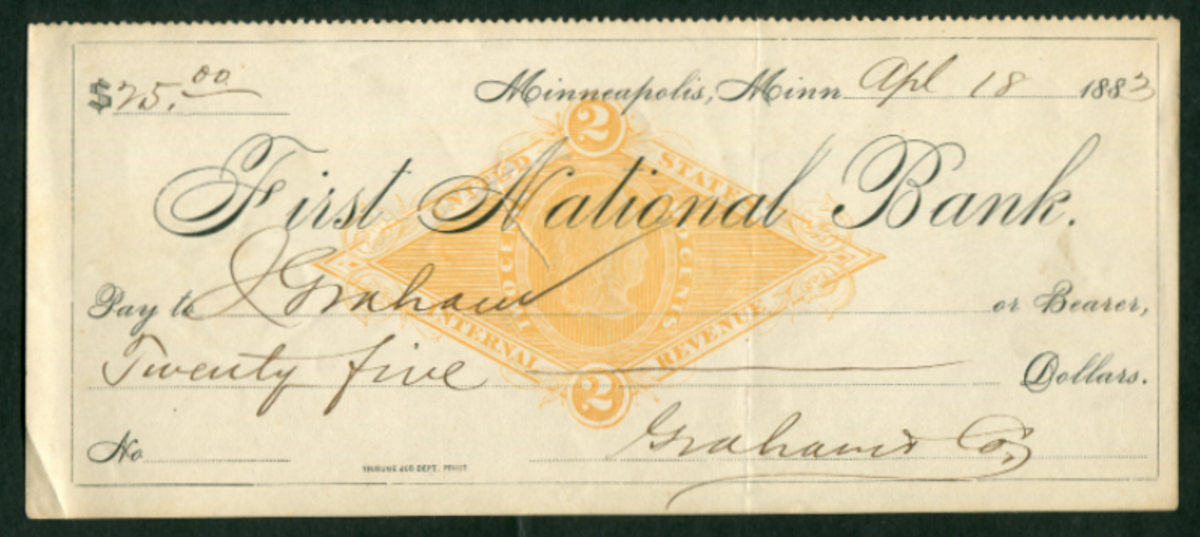 $25.00 Minneapolis, Minn. Apl 18 1883
First National Bank.
2
UNITED STATES
TWO CENTS
INTERNAL REVENUE
2
Pay to J Graham or Bearer,
Twenty five Dollars.
No
Graham & Co,
TRIBUNE JOB DEPT. PRINT